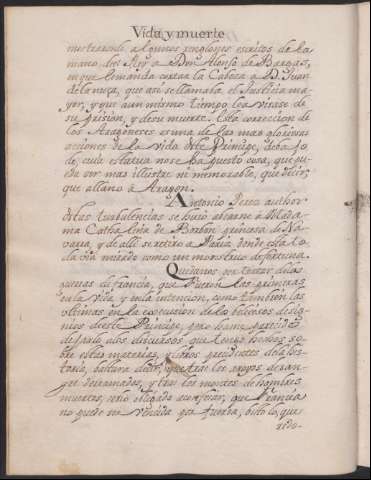 Vida y muerte
mostrando algunos renglones escritos de la
mano del Rey a Don Alonso de Bargas,
en que le manda cortar la Cabeza a D. Juan
de la nuça, que assi se llamaba el Justicia ma
yor, y que a un mismo tiempo le avisase de
su prision, y de su muerte. Esta correccion de
los Aragoneses es una de las mas gloriosas
acciones de la vida deste Principe, debajo
de cuia estatua no se ha puesto cosa, que pue
da ser mas illustre ni memorable, que decir,
que allanò à Aragon.
Antonio Perez author
de las turbulencias se huiò a Mada
ma Cathalina de Borbon princesa de Na
varra, y de alli se retirò a Paris donde esta to
da via mirado como un monstruo de fortuna.
Quisieros tratar de las
guerras de francia, que fueron las primeras
en la vida, y en la intencion, como tambien las
ultimas en la execucion de los belicosos desig
nios deste Principe, pero haviendo
à los discursos que tengo hechos so
bre estas materias, y otros de la his
toria, bastara decir, que tras los arroyos de san
gre derramados, y tras los montes de hombres
muertos, se viò obligado a confesar, que Francia
no puede ser vencida por fuerza, hizo lo, que